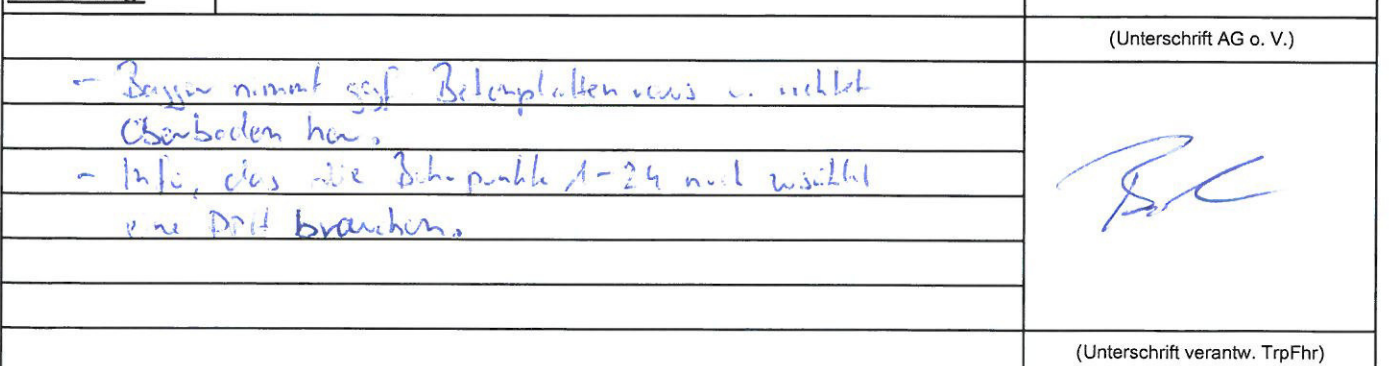 (Unterschrift AG o. V.)
- Bagger nimmt ggf. Betonplatten raus u. richtet
Oberboden her.
- Info, das die Bohrpunkte 1-24 noch
eine brauchen.
(Unterschrift verantw. TrpFhr)